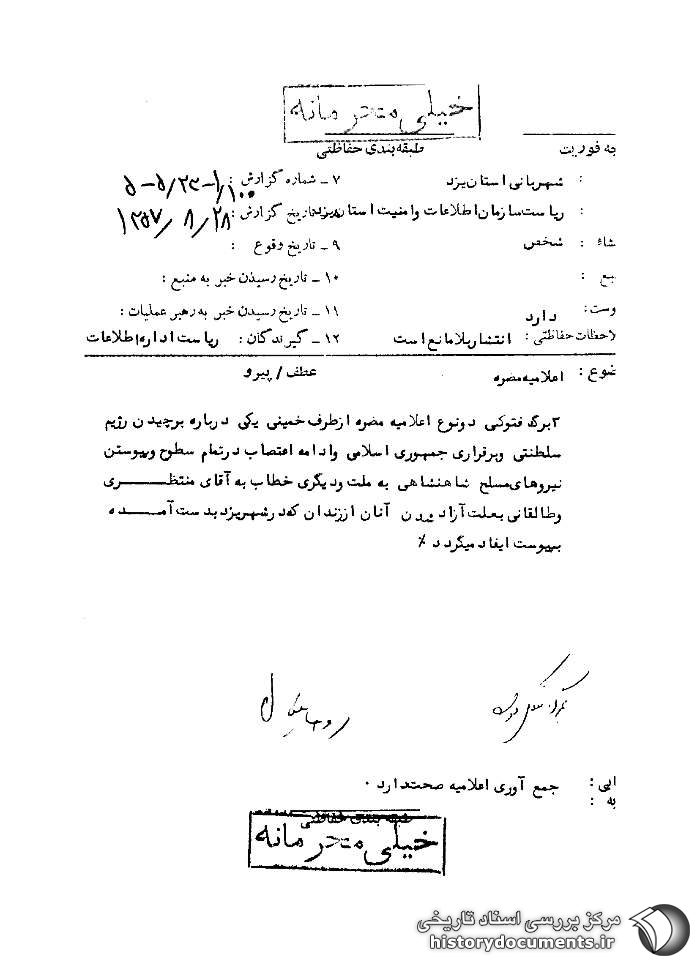 خیلی محرمانه
طبقه‌بندی حفاظتی
به فوریت
: شهربانی استان یزد ۷ ـ شماره گزارش :
: ریاست سازمان اطلاعات وامنیت استان یزد تاریخ گزارش : ۱۳۵۷/۸/۲۸
شاء : شخص ۹ ـ تاریخ وقوع :
بع : ۱۰ ـ تاریخ رسیدن خبر به منبع :
وست : دارد ۱۱ ـ تاریخ رسیدن خبر به رهبر عملیات :
لاحظات حفاظتی : انتشار بلامانع است ۱۲ ـ گیرندگان : ریاست اداره اطلاعات
ضوع : اعلامیه مضره عطف / پیرو
۲ برگ فتوکپی دونوع اعلامیه مضره ازطرف خمینی یکی درباره برچیدن رژیم
سلطنتی وبرقراری جمهوری اسلامی وادامه اعتصاب درتمام سطوح وپیوستن
نیروهای مسلح شاهنشاهی به ملت ودیگری خطاب به آقای منتظری
وطالقانی بعلت آزاد آنان اززندان که درشهریزد بدست آمده
بپیوست ایفاد میگردد ٪
ابی : جمع آوری اعلامیه صحت دارد ۰
به :
طبقه بندی حفاظتی
خیلی محرمانه
مرکز بررسی اسناد تاریخی
historydocuments.ir